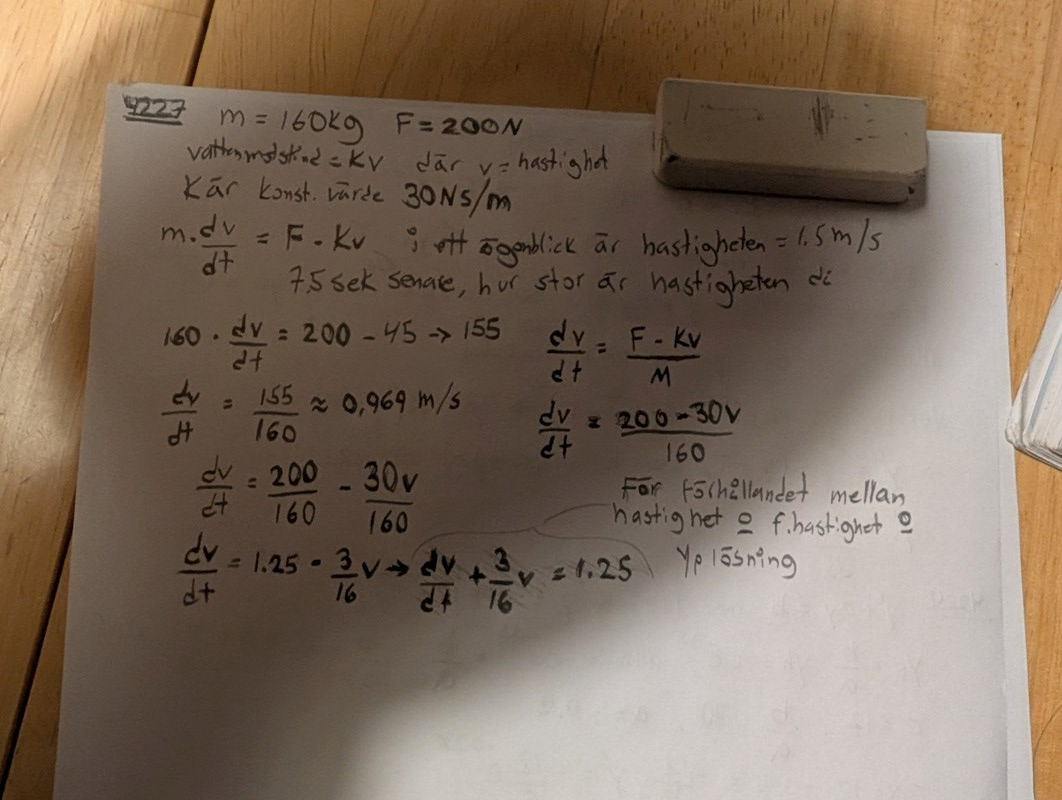 4227
m = 160kg F = 200N
vattenmotstånd = Kv där v = hastighet
K är konst. värde 30NS/m
m · dv/dt = F - Kv i ett ögonblick är hastigheten = 1.5 m/s
7,5 sek senare, hur stor är hastigheten då
160 · dv/dt = 200 - 45 → 155
dv/dt = F - Kv / M
dv/dt = 155/160 ≈ 0,969 m/s
dv/dt = 200 - 30v / 160
dv/dt = 200/160 - 30v/160
För förhållandet mellan
hastighet o f.hastighet o
Yp lösning
dv/dt = 1.25 - 3/16 v → dv/dt + 3/16 v = 1.25